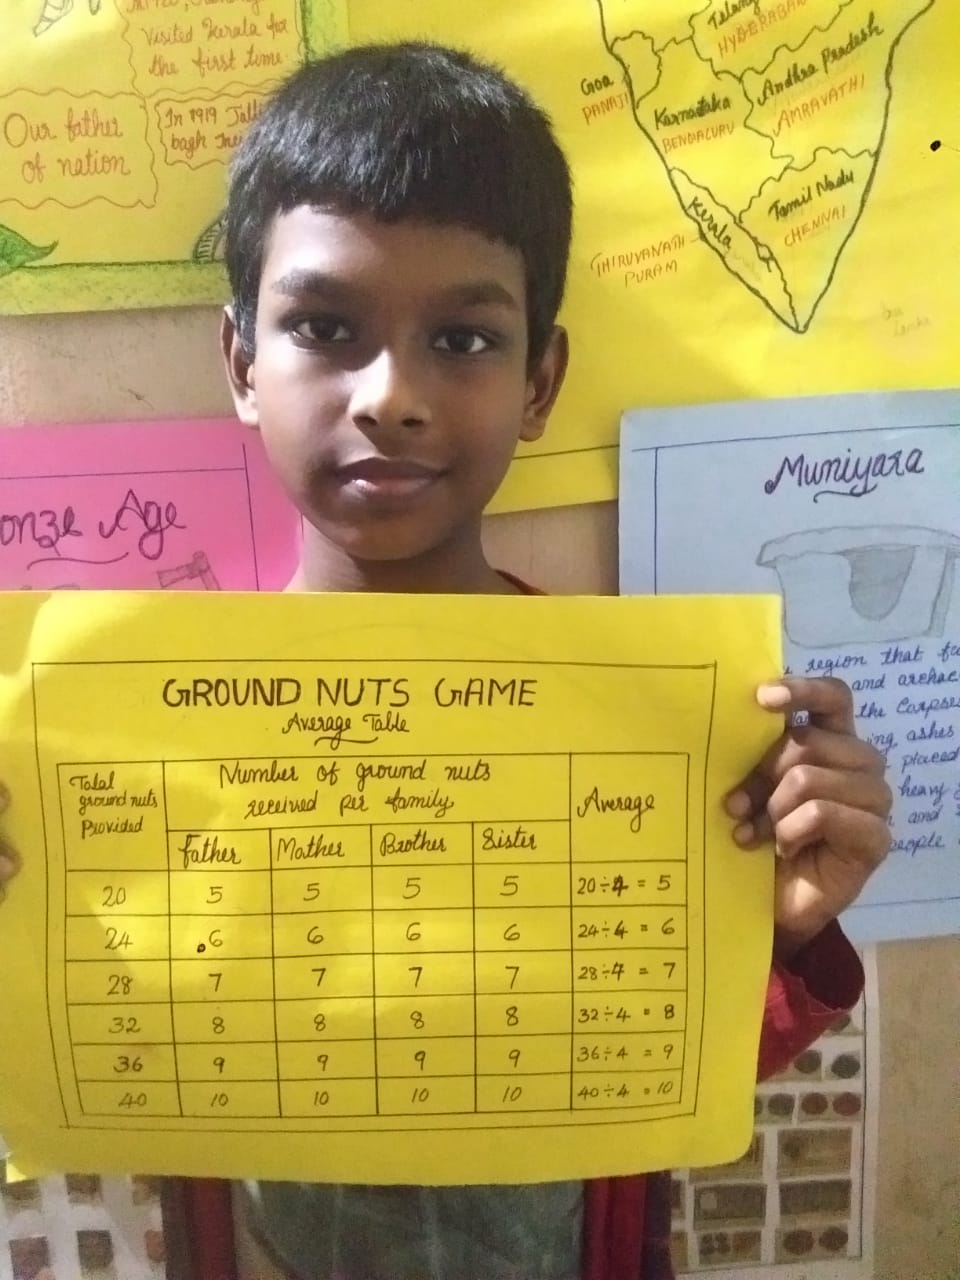 Visited Kerala for
the first time
Our father
of nation
In 1919
bagh
HYDERABAD
Goa
PANAJI
Karnataka
BENGALURU
Andhra Pradesh
AMRAVATHI
Kerala
THIRUVANATH
PURAM
Tamil Nadu
CHENNAI
Age
Muniyara
region that
and
the Corpses
ashes
placed
heavy
and
people
GROUND NUTS GAME
Average Table
Total
ground nuts
Provided
Number of ground nuts
received per family
Average
Father Mother Brother Sister
20 5 5 5 5 20÷4 = 5
24 6 6 6 6 24÷4 = 6
28 7 7 7 7 28÷4 = 7
32 8 8 8 8 32÷4 = 8
36 9 9 9 9 36÷4 = 9
40 10 10 10 10 40÷4 = 10